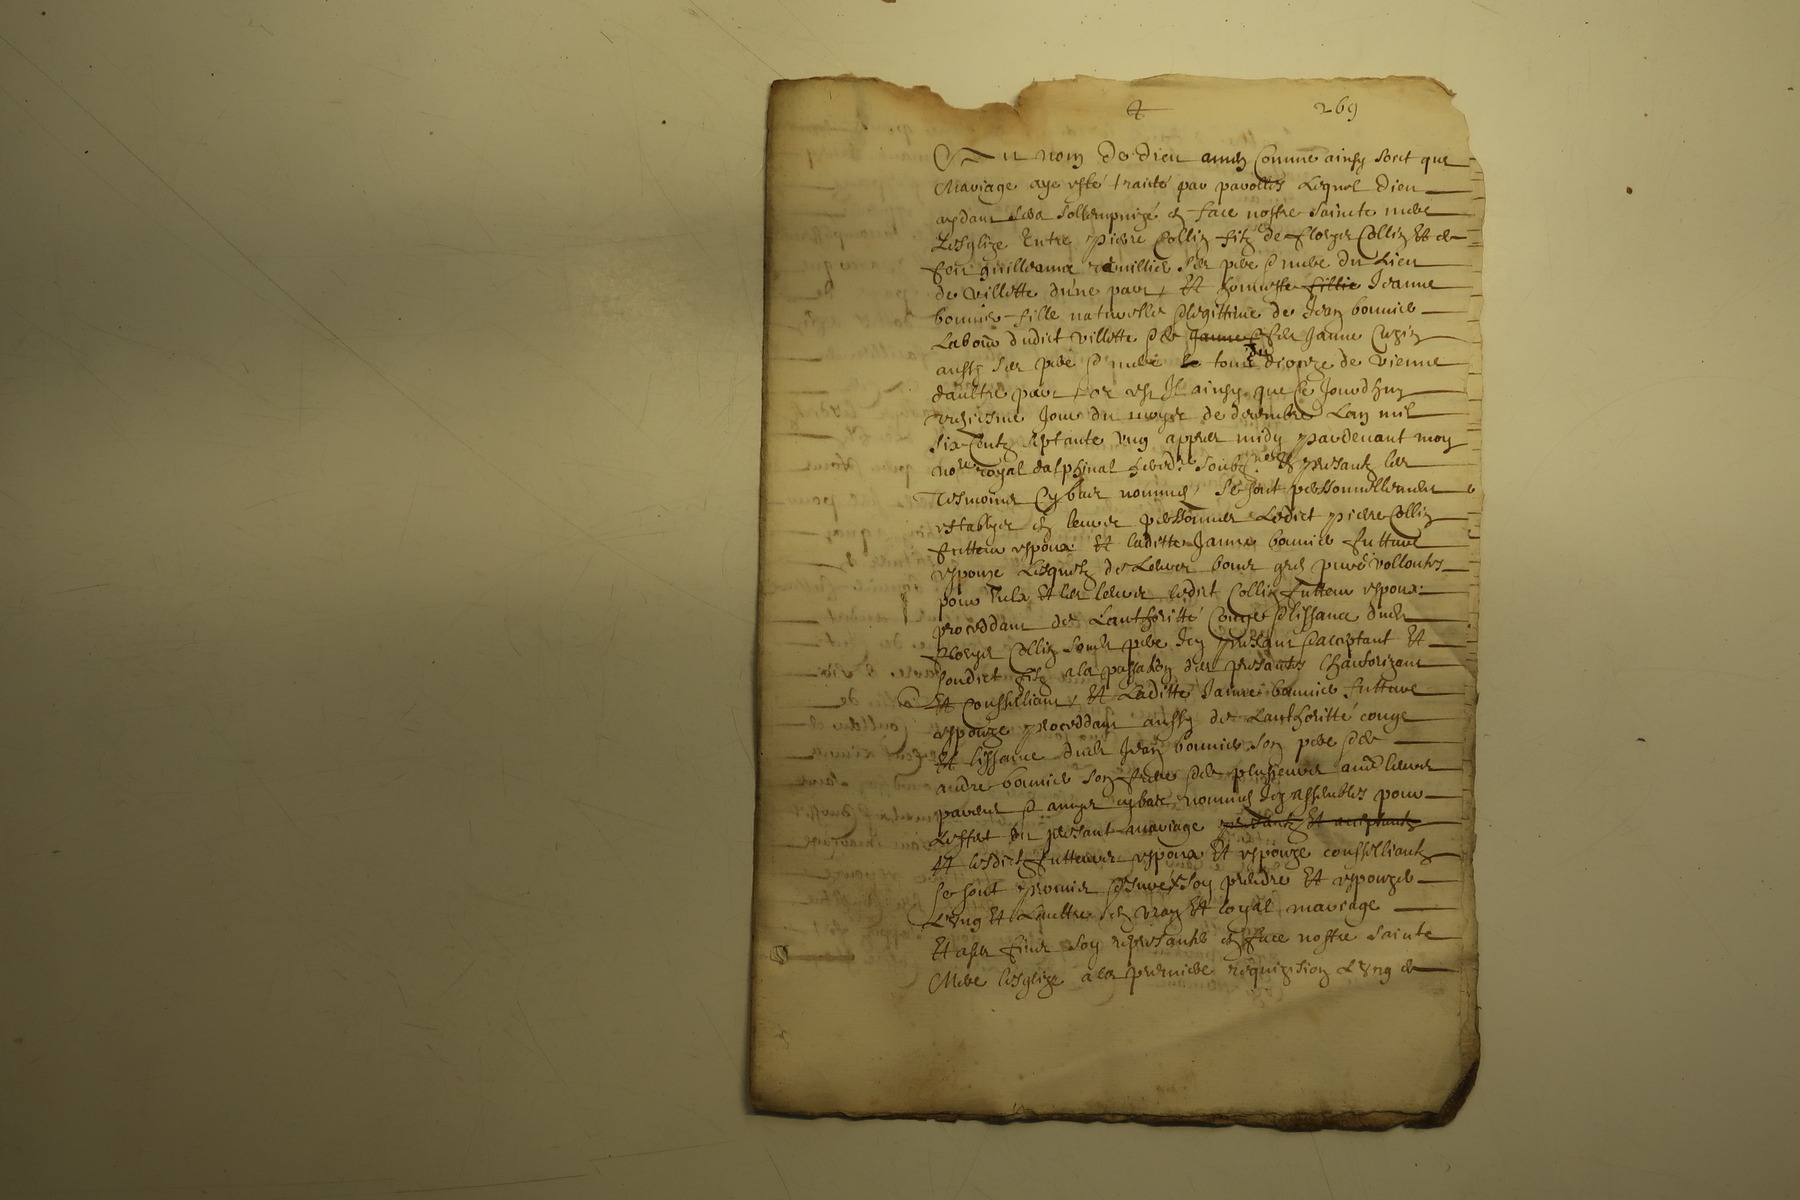 269
Au nom de dieu amen Comme ainsy soit que
Mariage aye esté traité par parolles Lequel dieu
aydant sera sollempnizé en face nostre saincte mere
Lesglize Entre pierre Collin filz de Floris Collin Et de
feu guillauma sa pere & mere du Lieu
de villette dune part, Et honneste fillie Jeanne
bonnier fille naturelle & legittime de Jean bonnier
Labour dudict villette & de Janne & de Janne
aussy ses pere & mere le tout dioceze de vienne
daultre part, or est Il ainsy que Ce Jourdhuy
Jour du moys de decembre Lan mil
six Centz septante ung appres midy pardevant moy
nore royal dalphinal hered. soubz. Et presantz les
Tesmoins Cy bas nommes, se sont personnellement
establys en leurs personnes Ledict pierre Collin
futteur espoux Et laditte Janne bonnier futture
espouze Lesquelz de Leurs bons gres pures vollontes
pour Eulx Et les leurs ledict Collin futteur espoux
proceddant de Lauthoritté Conge & lissance dudict
Floris Collin sondict pere Icy presant & acceptant Et
sondict filz a la passation des presantes Lhauthorizant
Et Conseillant, Et Laditte Janne bonnier futture
espouze proceddant aussy de Lauthoritté conge
Et lissance dudict Jean bonnier son pere & de
andre bonnier son frere & de plusieurs autres leurs
parens & amys cy bas nommes Icy assembles pour
Leffet du presant mariage presantz Et acceptantz
Et lesdictz futteurs espoux Et espouze conseillantz
se sont promis & Jure soy prendre Et espouzer
Lung Et Laultre en vray Et loyal mariage
Et a ses fins soy représanter en face nostre sainte
Mere lesglize a la premiere requizition Lung de